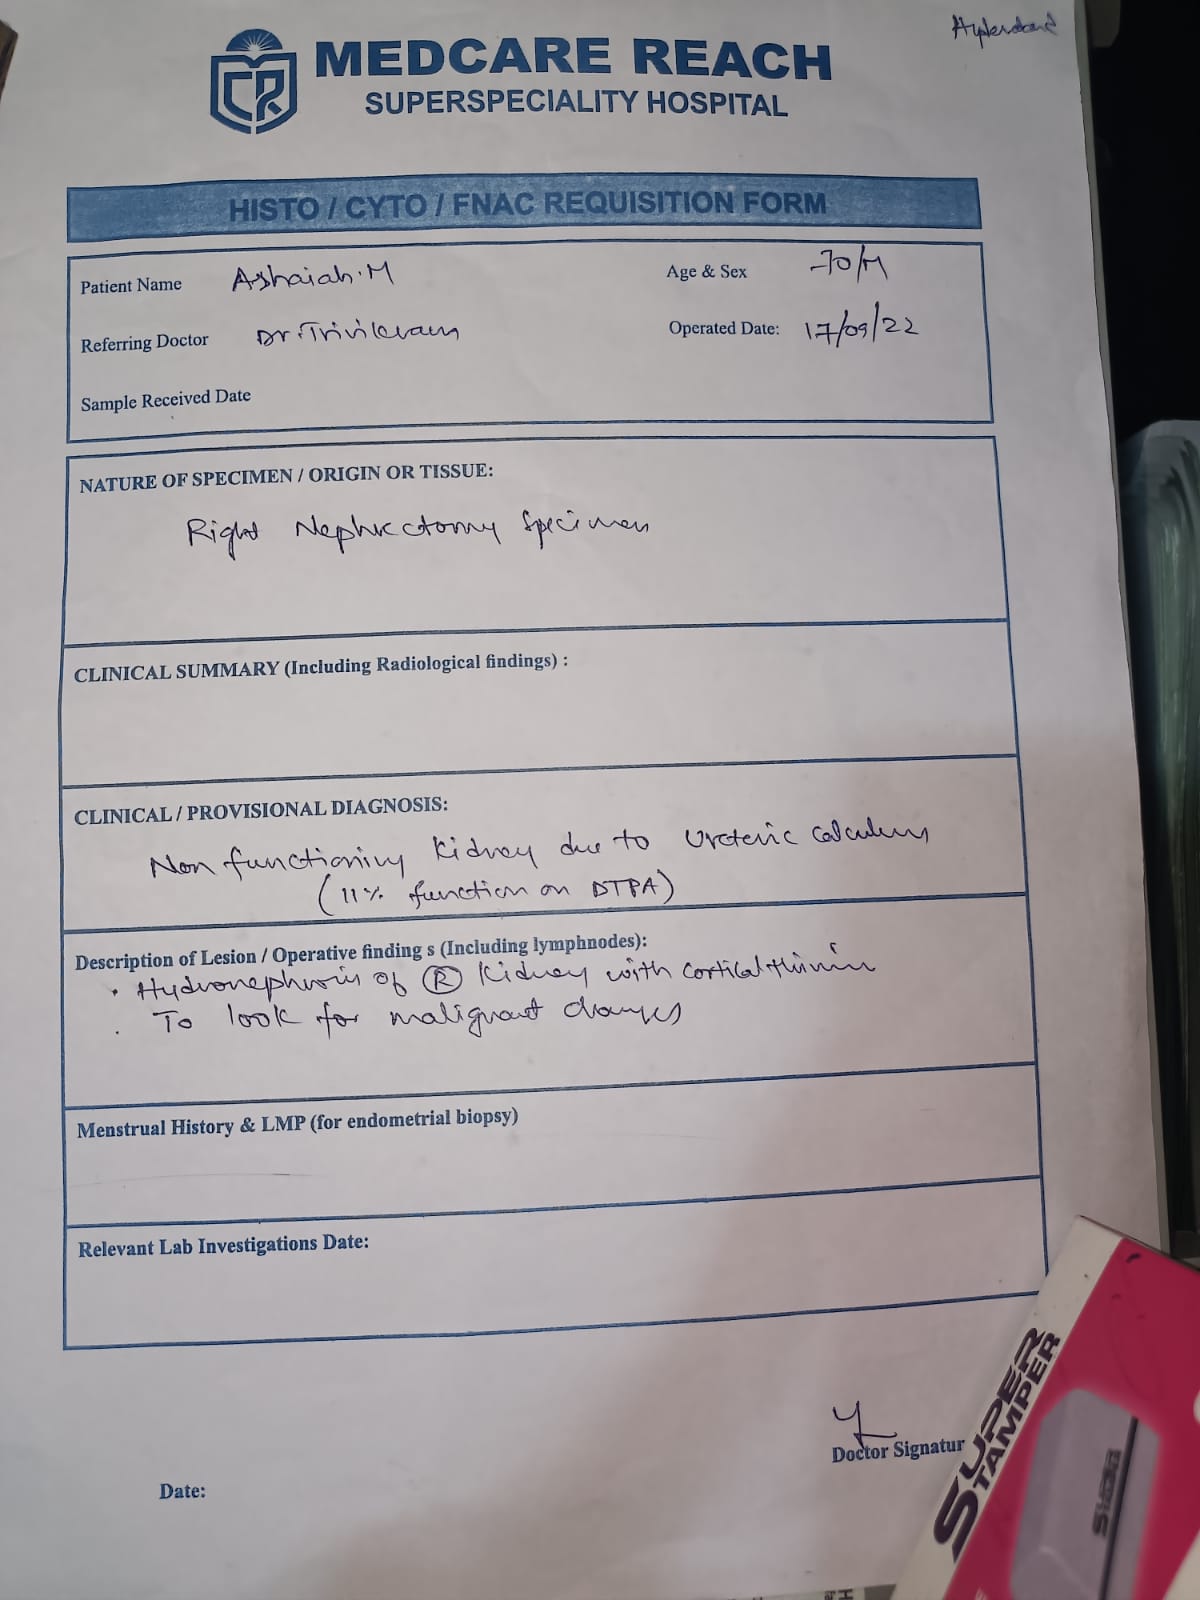 Hyderabad
MEDCARE REACH
SUPERSPECIALITY HOSPITAL
HISTO / CYTO / FNAC REQUISITION FORM
Patient Name Ashaiah.M Age & Sex 70/M
Referring Doctor Dr. Trivikram Operated Date: 17/09/22
Sample Received Date
NATURE OF SPECIMEN / ORIGIN OR TISSUE:
Right Nephrectomy Specimen
CLINICAL SUMMARY (Including Radiological findings) :
CLINICAL / PROVISIONAL DIAGNOSIS:
Non functioning kidney due to Ureteric calculus
(11% function on DTPA)
Description of Lesion / Operative finding s (Including lymphnodes):
• Hydronephrosis of Ⓡ kidney with cortical thinnin
. To look for malignant changes
Menstrual History & LMP (for endometrial biopsy)
Relevant Lab Investigations Date:
Doctor Signatur
Date:
SUPER
STAMPER